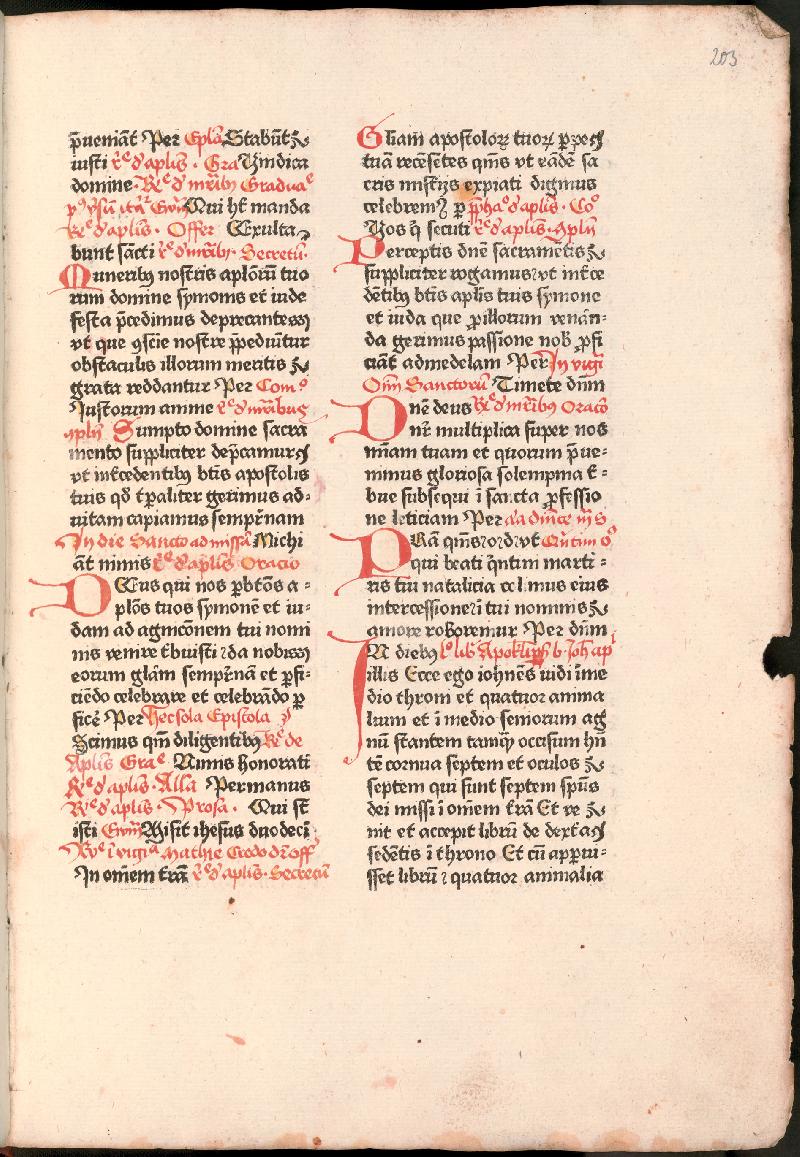 203
p̄ueniāt Per Ep̄la Stabūt
iusti r͛e d' aplis · Gra Vindica
domine · Re d' mr̄ibꝫ Graduaͤ
Qui ht̄ manda
Re d' aplis · Offer Exulta
bunt sācti re d' mr̄ibꝫ · Secretū ·
Muneribꝫ nostris aplōrū tuo
rum domine symonis et iude
festa p̄cedimus deprecantes
vt que 9scīe nostre p̄pediūtur
obstaculis illorum meritis
grata reddantur Per Com̊
Iustorum anime re d' mr̄ibus
9plīꝫ Sumpto domine sacra
mento suppliciter dep̄camur
vt int̄cedentibꝫ btīs apostolis
tuis qd̄ t̄paliter gerimus ad ⸗
vitam capiamus semprnam
In die Sancto ad missā Michi
āt nimis re d' aplis Oracio
DEus qui nos p btōs a ⸗
plōs tuos symonē et iu⸗
dam ad agnicōnem tui nomi
nis venire t̄buisti ⁊ da nobis
eorum glām semprnā et ꝓfi⸗
ciēdo celebrare et celebrādo ꝓ
ficē Per Hec sola Epistola
Scimus qm̄ diligentibꝫ Re de
Aplis Grae Nimis honorati
Re d' aplis · Alla Per manus
Re d' aplis · Prosa · Qui st̄
isti Ewm̄ Misit ihesus duodecī
Re ī vigi̅a Mathie Credo dr̄ off
In om̄em trā re d' aplis · Secretū
Gliam apostoloꝝ tuoꝝ ꝑpe
tuā recēsētes qm̄s vt eādē sa
cris mist̄ijs expiati dignius
celebremꝰ ꝑ p̄fha̅o d' aplis · Co̊
Vos q̄ secuti re d' aplis · 9plīꝫ
Perceptis dnē sacramētis
suppliciter rogamus ⁊ vt int̄ce
dētibꝫ btīs aplis tuis symone
et iuda que ꝓ illorum venān⸗
da gerimus passione nob̄ ꝓfi
ciāt ad medelam Per In vigi
Om̄ Sanctorū Timete dūm
DNē deus Re d' mr̄ibus Oracō
nr̄ multiplica super nos
grām tuam et quorum p̄ue⸗
nimus gloriosa solempnia t̄⸗
bue subsequi ī sancta ꝓfessio
ne leticiam Per
PRa qm̄s o ds vt
qui beati q̄ntini marti⸗
ris tui natalicia colimus eius
intercessione ī tui nominis
amore roboremur Per dūm
IN diebꝫ lō lib̄ Apokalipsꝫ b · Ioh̄ ap
illis Ecce ego iohnēs vidi ī me
dio throni et quatuor anima
lium et ī medio seniorum ag
nū stantem tamqꝫ occisum hn̄
tē cornua septem et oculos
septem qui sunt septem spūs
dei missi ī om̄em trā Et ve
nit et accepit librū de dext̄a
sedētis ī throno Et cū aperui⸗
sset librū ⁊ quatuor animalia